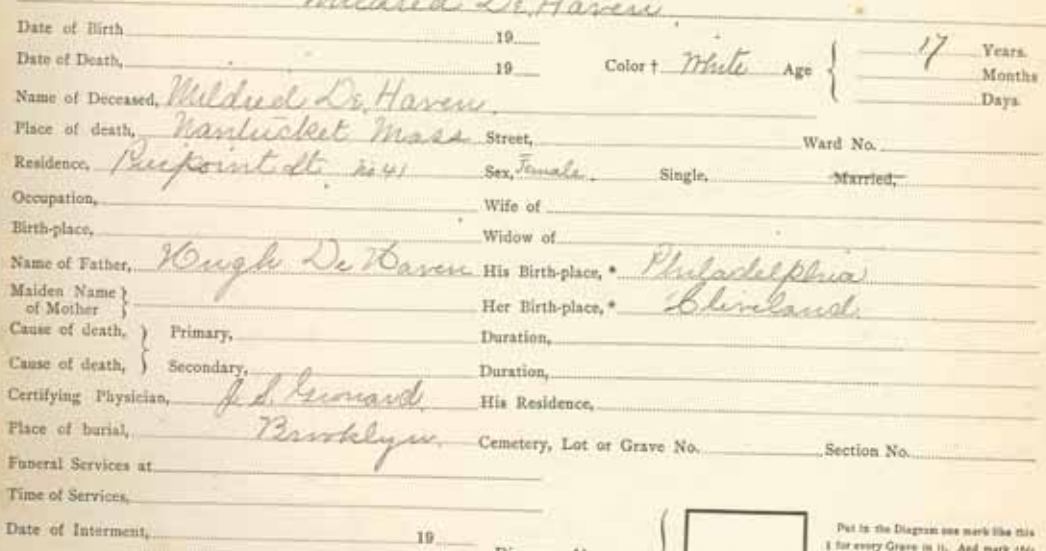 Mildred De Haven
Date of Birth 19
Date of Death, 19 Color † White Age { 17 Years.
Months
Days.
Name of Deceased, Mildred De Haven
Place of death, Nantucket Mass Street, Ward No.
Residence, Pierpoint St no 41 Sex, Female. Single, Married,
Occupation, Wife of
Birth-place, Widow of
Name of Father, Hugh De Haven His Birth-place, * Philadelphia
Maiden Name of Mother } Her Birth-place, * Cleveland
Cause of death, } Primary, Duration,
Cause of death, } Secondary, Duration,
Certifying Physician, J. S. His Residence,
Place of burial, Brooklyn. Cemetery, Lot or Grave No. Section No.
Funeral Services at
Time of Services,
Date of Interment, 19
Put in the Diagram one mark like this
1 for every Grave in it. And mark this